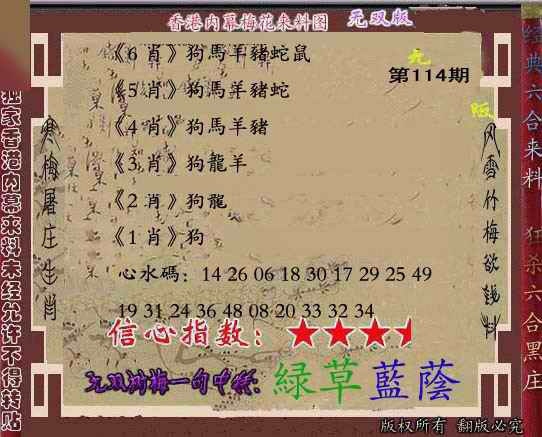 香港内幕梅花来料图 无双版
第114期
《6 肖》狗馬羊豬蛇鼠
《5 肖》狗馬羊豬蛇
《4 肖》狗馬羊豬
《3 肖》狗龍羊
《2 肖》狗龍
《1 肖》狗
心水碼：14 26 06 18 30 17 29 25 49
19 31 24 36 48 08 20 33 32 34
信心指数：★★★
綠草藍蔭
版权所有 翻版必究
独家香港内幕来料未经允许不得转贴
寒梅屠庄生肖
风雪竹梅欲钱料
经典六合来料
狂杀六合黑庄